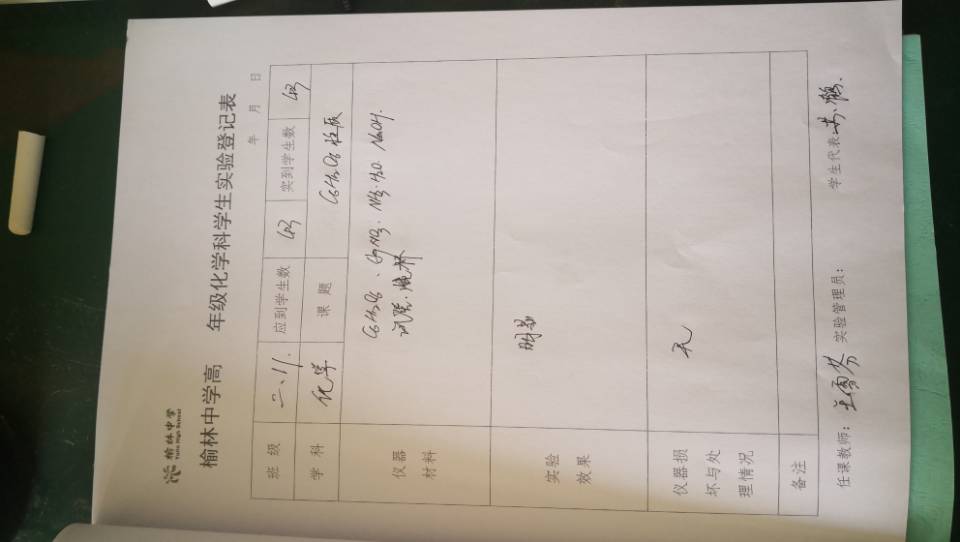 榆林中学
Yulin High School
榆林中学高 年级化学科学生实验登记表
年 月 日
班 级 二、11. 应到学生数 实到学生数
学 科 化学 课 题 C6H12O6 性质
仪器
材料
C6H12O6、AgNO3、NH3·H2O NaOH.
试管、烧杯
实验
效果
明显
仪器损
坏与处
理情况
无
备注
任课教师： 实验管理员： 学生代表